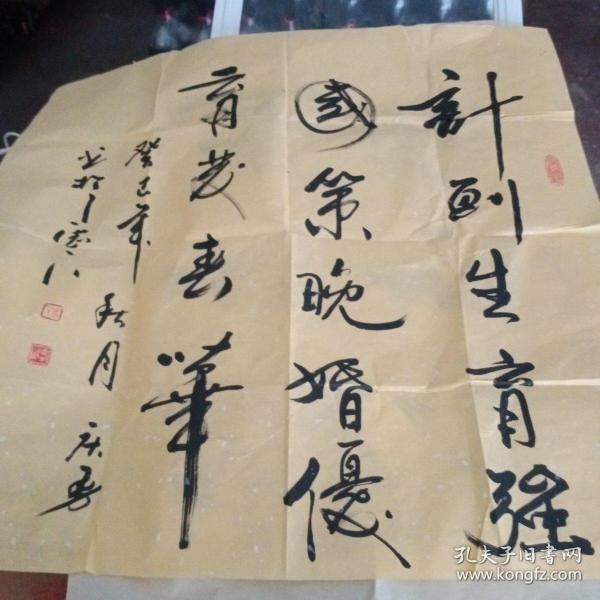 計劃生育强
國策晚婚優
育茂春華
癸巳年秋月庆寿
书於
孔夫子旧书网
www.kongfz.com